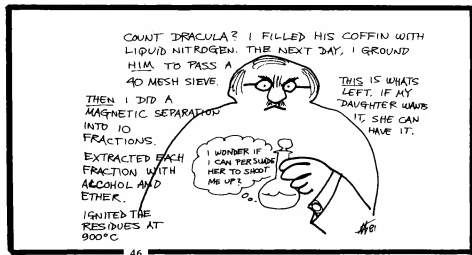 COUNT DRACULA? I FILLED HIS COFFIN WITH
LIQUID NITROGEN. THE NEXT DAY, I GROUND
HIM TO PASS A
40 MESH SIEVE.
THEN I DID A
MAGNETIC SEPARATION
INTO 10
FRACTIONS.
EXTRACTED EACH
FRACTION WITH
ALCOHOL AND
ETHER.
IGNITED THE
RESIDUES AT
900°C
THIS IS WHATS
LEFT. IF MY
DAUGHTER WANTS
IT, SHE CAN
HAVE IT.
I WONDER IF
I CAN PERSUADE
HER TO SHOOT
ME UP?
81
46